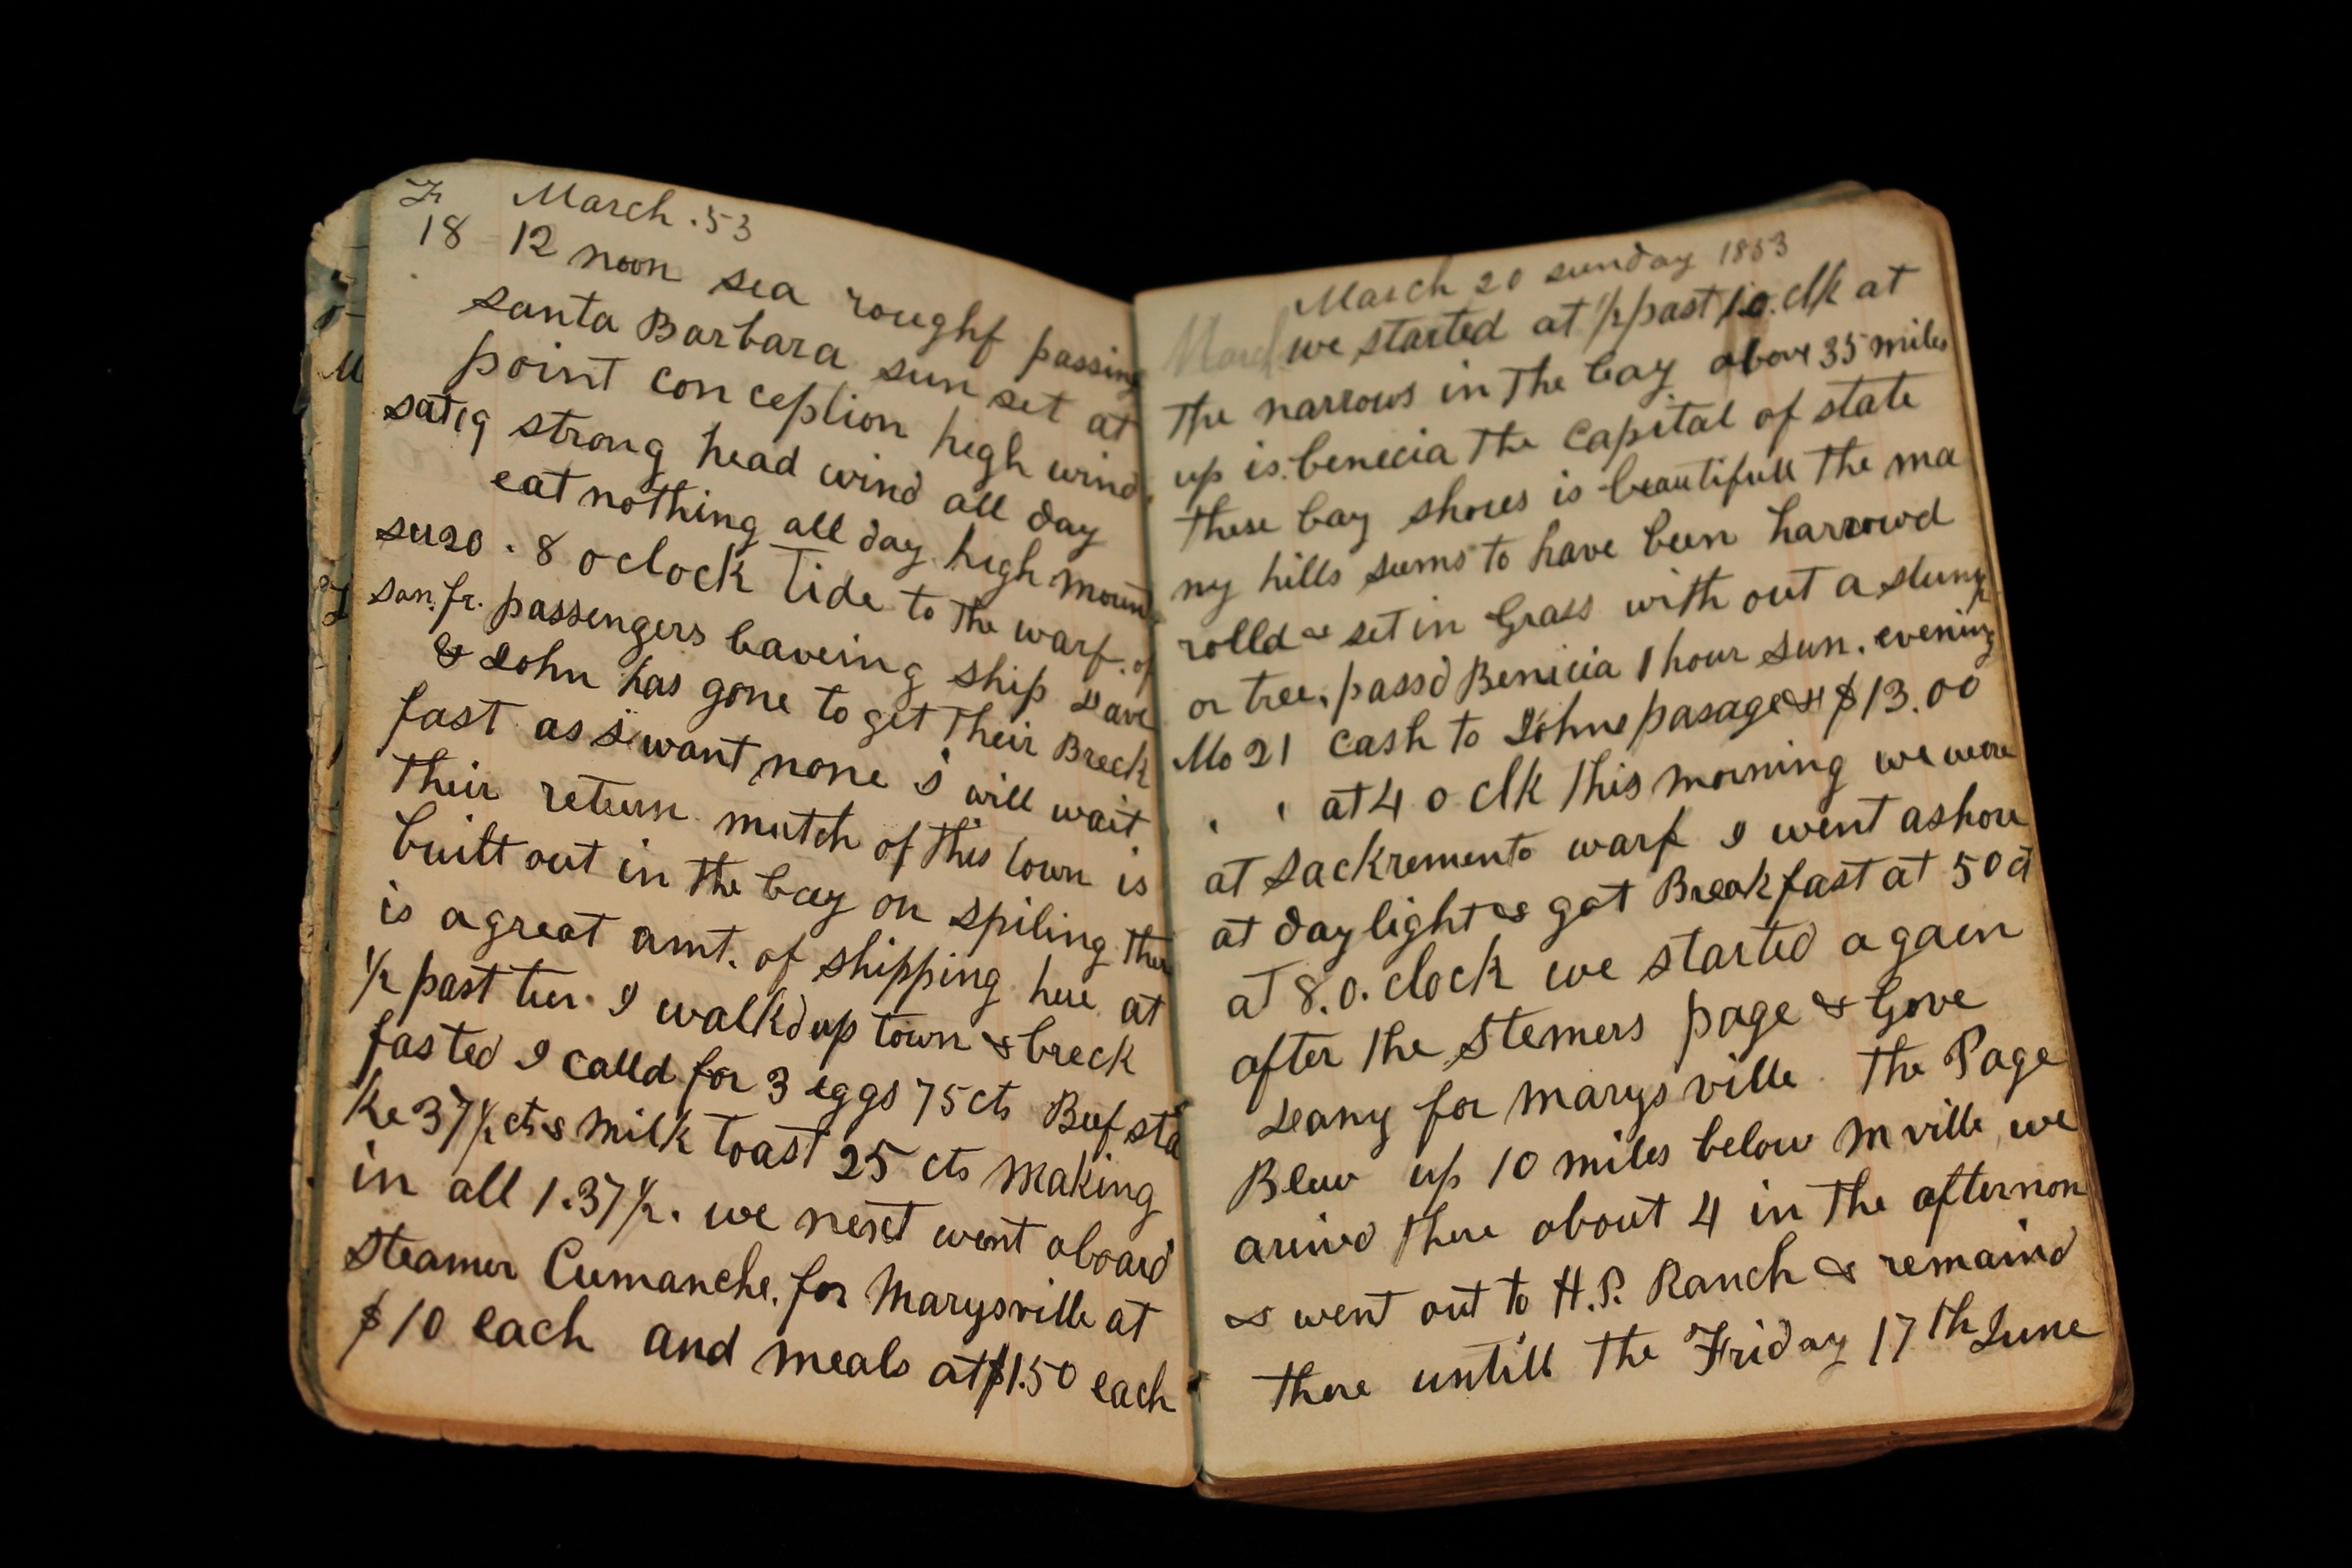 Fr March .53
18 12 noon sea roughf passing
santa Barbara sun set at
point conception high wind
sat 19 strong head wind all day
eat nothing all day high mount
su 20 . 8 o clock Tide to the warf. of
san. fr. passengers leaveing ship Dave
& John has gone to get their Breck
fast as i want none i will wait
their return mutch of this town is
built out in the bay on spiling ther
is a great amt. of shipping here at
1/2 past ten. I walkd up town & breck
fasted I calld for 3 eggs 75 cts Beef sta
ke 37 1/2 cts & milk toast 25 cts making
in all 1.37 1/2. we next went aboard
steamer Cumanche. for Marysville at
$10 each and meals at $1.50 each
March 20 sunday 1853
March we started at 1/2 past 1.0. clk at
the narrows in the bay above 35 miles
up is. benecia the capital of state
these bay shores is beautifull the ma
ny hills seems to have been harrowd
rolld & set in Grass with out a stump
or tree. passd Benicia 1 hour sun. evening
Mo 21 cash to Johns pasage $13.00
at 4 o clk this morning we were
at sackremento warf I went ashore
at day light & got Breakfast at 50 ct
at 8. o. clock we started again
after the Stemers page & Gove
Deany for marys ville. The Page
Blew up 10 miles below m ville we
arived there about 4 in the afternon
& went out to H.P. Ranch & remaind
there untill the Friday 17th June